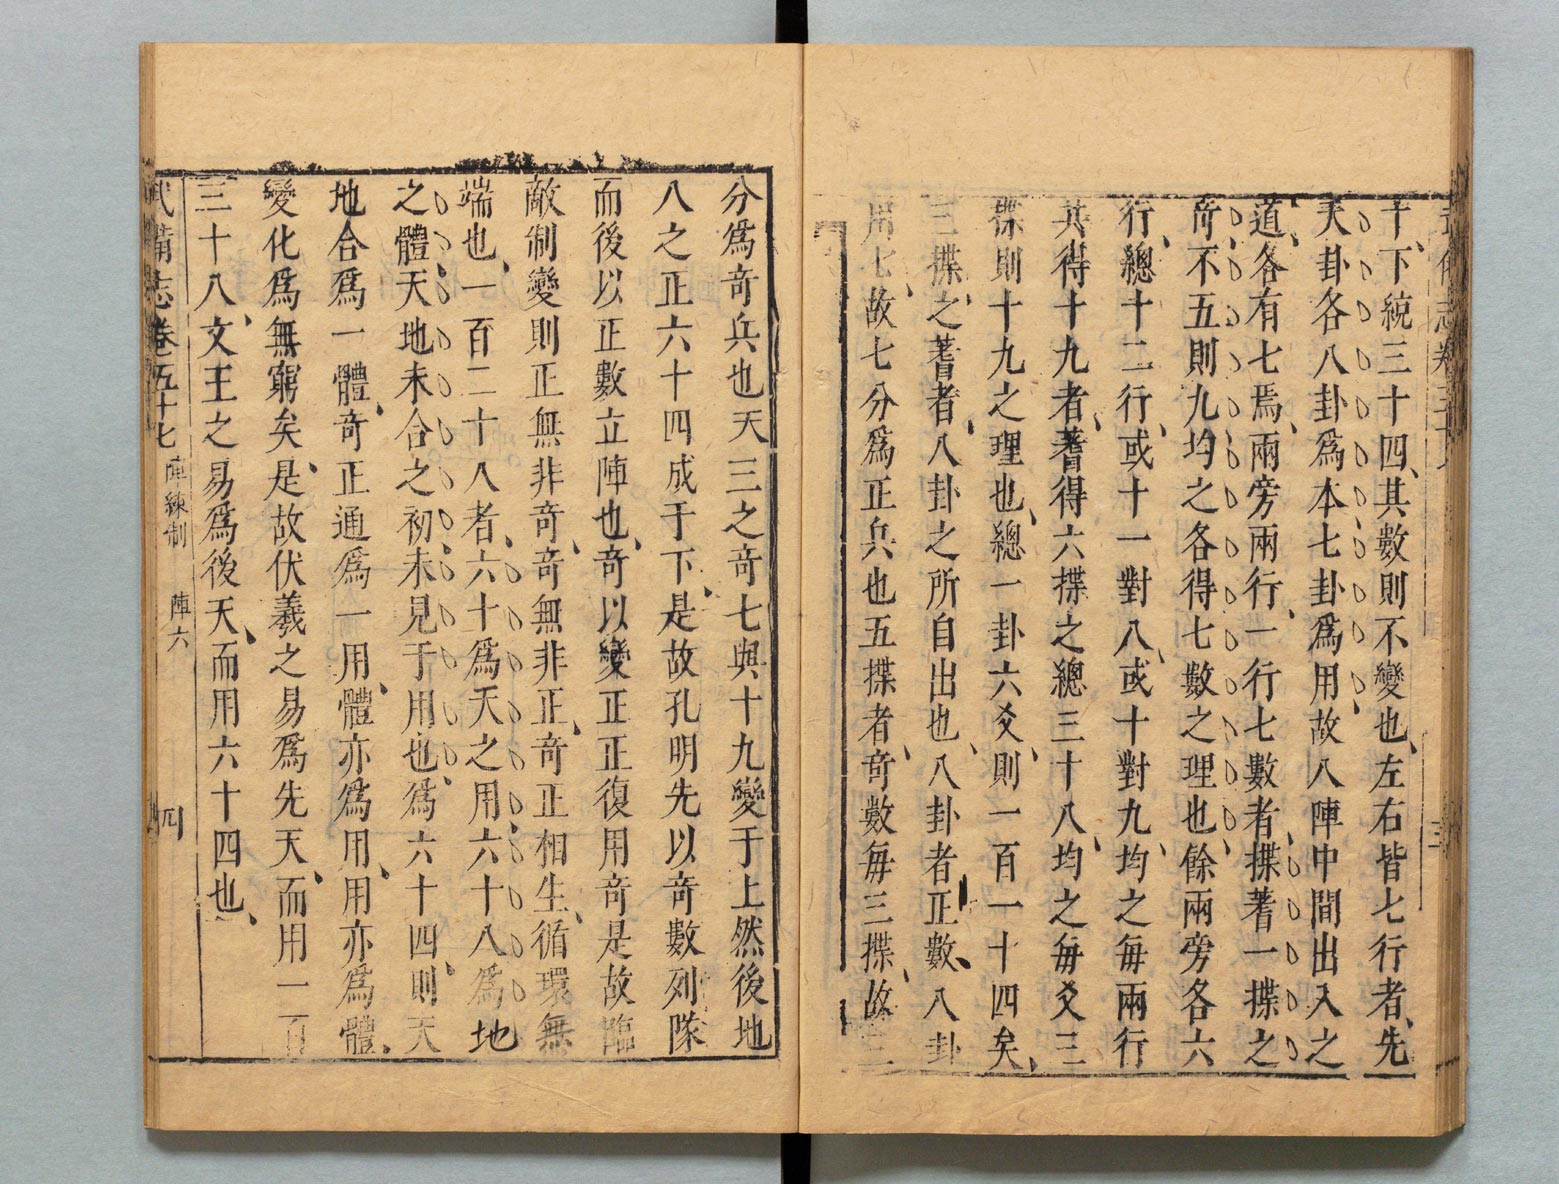 十下統三十四其數則不變也左右皆七行者先
天卦各八卦爲本七卦爲用故八陣中間出入之
道各有七焉兩旁兩行一行七數者揲蓍一揲之
奇不五則九均之各得七數之理也餘兩旁各六
行總十二行或十一對八或十對九均之每兩行
共得十九者蓍得六揲之總三十八均之每爻三
揲則十九之理也總一卦六爻則一百一十四矣
三揲之蓍者八卦之所自出也八卦者正數八卦
用七故七分爲正兵也五揲者奇數每三揲故三
分爲奇兵也天三之奇七與十九變于上然後地
八之正六十四成于下是故孔明先以奇數列隊
而後以正數立陣也奇以變正正復用奇是故臨
敵制變則正無非奇奇無非正奇正相生循環無
端也一百二十八者六十爲天之用六十八爲地
之體天地未合之初未見于用也爲六十四則天
地合爲一體奇正通爲一用體亦爲用用亦爲體
變化爲無窮矣是故伏羲之易爲先天而用一百
三十八文王之易爲後天而用六十四也
武備志卷五十七 陣練制 陣六 四